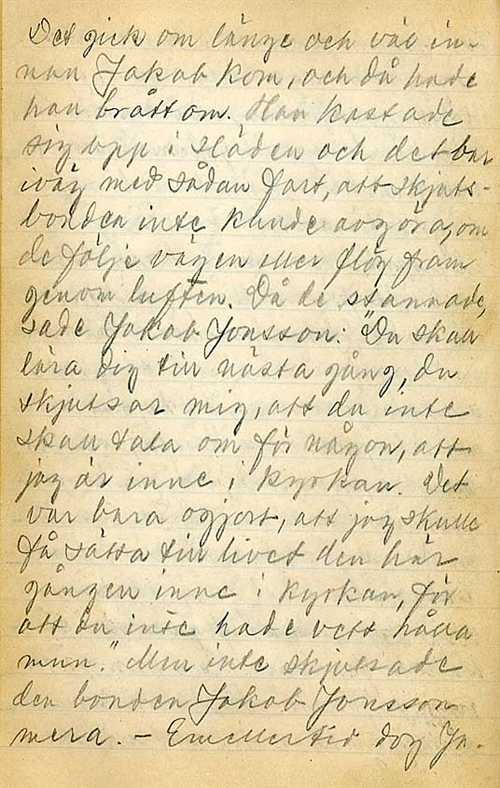 Det gick om länge och väl in-
nan Jakob kom, och då hade
han bråttom. Han kastade
sig upp i släden och det bar
iväg med sådan fart, att skjuts-
bonden inte kunde avgöra, om
de följe vägen eller flög fram
genom luften. Då de stannade,
sade Jakob Jonsson: "Du skall
lära dig till nästa gång, du
skjutsar mig, att du inte
skall tala om för någon, att
jag är inne i kyrkan. Det
var bara ogjort, att jag skulle
få sätta till livet den här
gången inne i kyrkan, för
att du inte hade vett hålla
mun." Men inte skjutsade
den bonden Jakob Jonsson
mera. – Emellertid dog Ja-